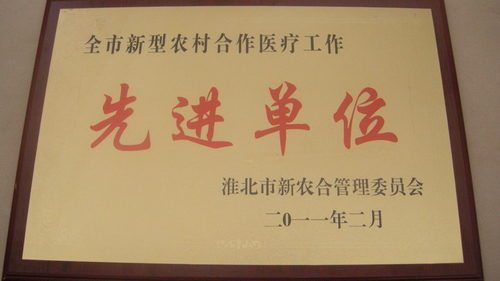 全市新型农村合作医疗工作
先进单位
淮北市新农合管理委员会
二0一一年二月